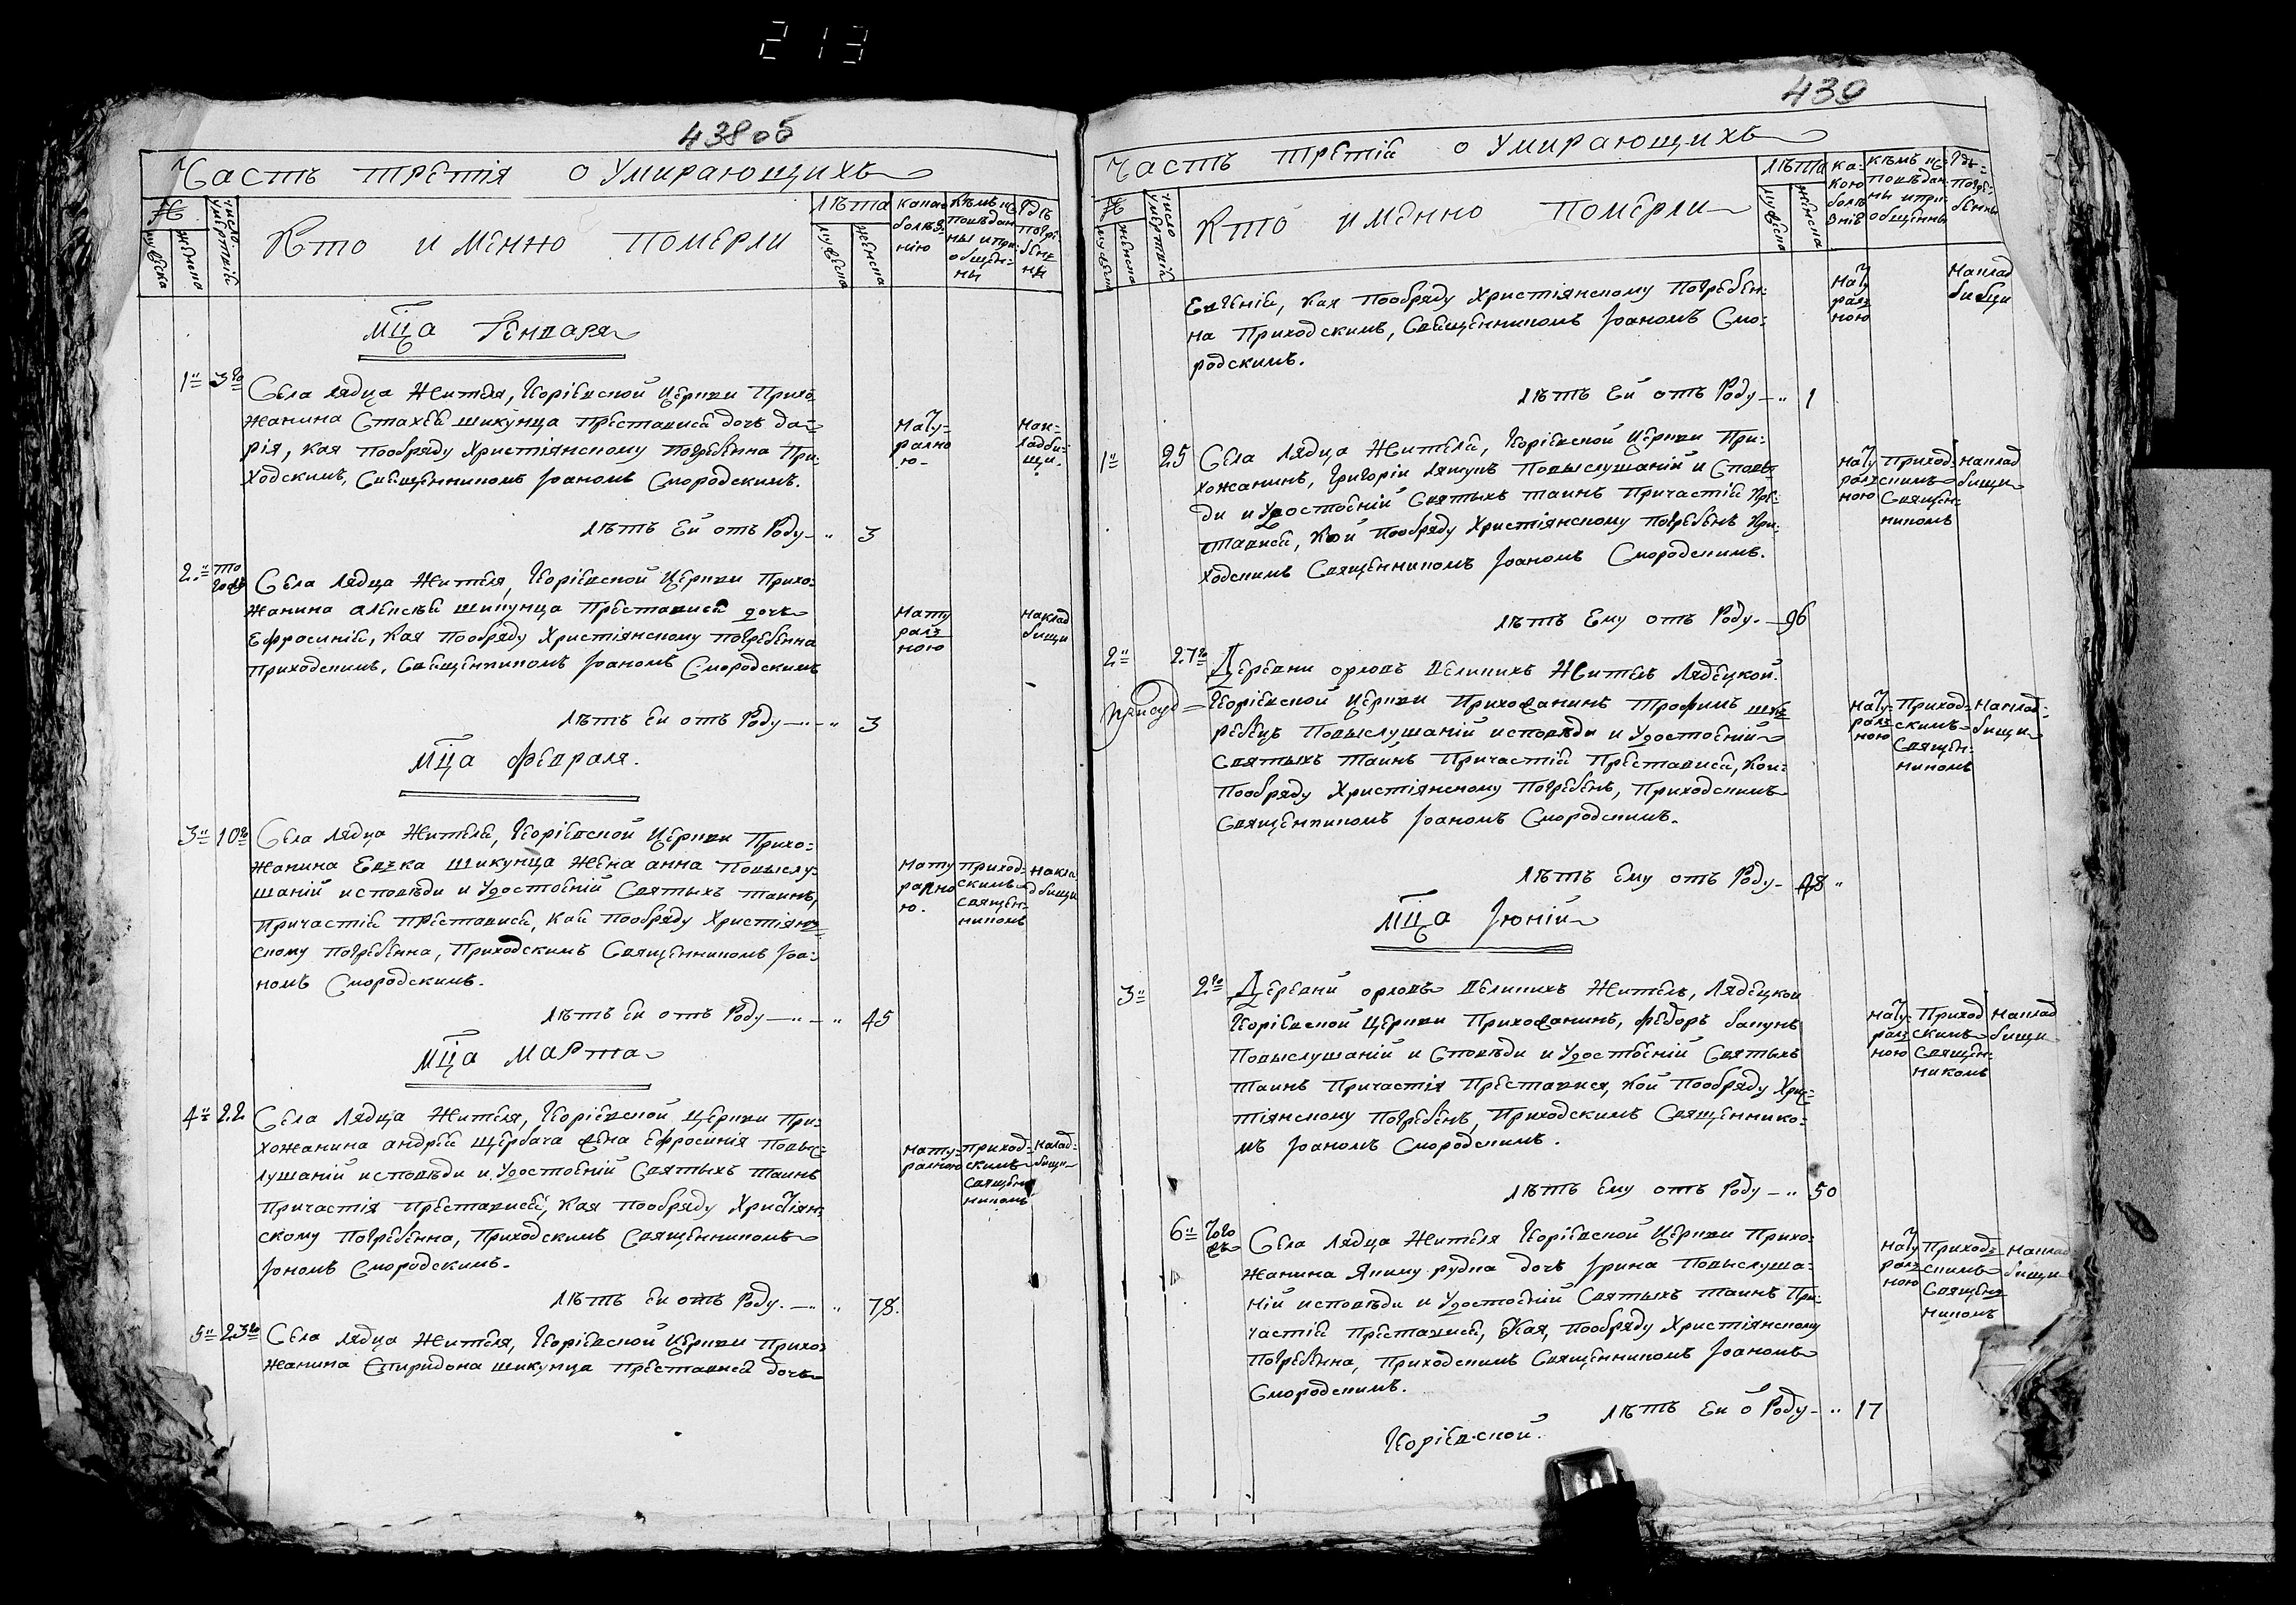 213
438 об
Часть третія о Умирающихъ
№
мужска
женска
число умертвій
Кто именно померли
лѣта
мужска
женска
какою болѣзнію
кѣмъ исповѣданны и пріобщенны
гдѣ погребенны
Мца Генваря
1 3го Села лядца Жителя, Георіевской Церкви Прихо
жанина Стахей шикунца Преставися дочь да=
рія, кая пообряду Христіянскому погребенна При:
ходскимъ, Священникомъ Іоаномъ Смородскимъ.
Нату=
рално
ю-
Нак=
ладби=
щи.
лѣтъ Ей отъ Роду — 3
2 того Села лядца Жителя, Георіевской Церкви Прихо:
жанина Алексѣй шикунца Преставися дочь
Ефросиній, кая пообряду Христіянскому погребенна
приходскимъ, Священникомъ Іоаномъ Смородскимъ
Нату
рал=
ною
Наклад
бищи
лѣтъ Ей отъ Роду — 3
Мца Февраля.
3 10го Села лядца Жителей, Георіевской Церкви Прихо=
жанина Евхка шикунца Жена анна Повыслу=
шаній исповѣди и Удостоеній Святыхъ таинъ,
Причастій Преставися, кай пообряду Христіян=
скому погребенна, Приходскимъ Священникомъ Іоа=
номъ Смородскимъ.
Нату
рално
ю.
приход=
скимъ
Священ=
никомъ
Накла
дбищи
лѣтъ Ей отъ Роду — 45
Мца Марта
4 22 Села Лядца Жителя, Георіевской Церкви При=
хожанина андрей Щербача жена Ефросинія Повыс=
лушаній исповѣди и Удостоеній Святыхъ таинъ
Причастія Преставися, кая пообряду Христіян=
скому Погребенна, Приходскимъ Священникомъ
Іономъ Смородскимъ.
Нату=
ралною
приход=
скимъ
Священ
никомъ
Налад=
бищи
лѣтъ Ей отъ Роду. — 78.
5 23го Села лядца Жителя, Георіевской Церкви Прихо=
жанина Спиридона шикунца Преставися дочь
439
Часть третій о Умирающихъ
№
мужска
женска
число умертвій
Кто именно померли
лѣта
мужска
женска
ка-
кою
болѣ
зніе
кѣмъ ис
повѣдан
ны и прі
общенны
Гдѣ=
погре=
бенны
Евгеній, кая пообряду Христіянскому Погребен=
на Приходскимъ, Священникомъ Іоаномъ Смо=
родскимъ.
Нату
рал
ною
Наклад
бищи
лѣтъ Ей отъ Роду — 1
1 25 Села Лядца Жителей, Георіевской Церкви При=
хожанинъ, Григорій лякунъ Повыслушаній и Спове
ди и Удостоеній Святыхъ таинъ Причастій Пре=
ставися, Кой пообряду Христіянскому погребенъ При=
ходскимъ Священникомъ Іоаномъ Смородскимъ.
Нату
рал
ною
Приход=
скимъ
Священ=
никомъ
Наклад
бищи
лѣтъ Ему отъ Роду. — 96
2 27го Деревни орловъ Великихъ Житель Лядецкой
Георіевской Церкви Прихожанинъ Трофимъ
ребецъ Повыслушаній исповѣди и Удостоеній
Святыхъ таинъ Причастій Преставися, Кои=
Пообряду Христіянскому Погребенъ, Приходскимъ
Священникомъ Іоаномъ Смородскимъ.
Нату=
рал
ною
Приход=
скимъ
Священ=
никомъ
Наклад=
бищи
лѣтъ Ему отъ Роду —
Мца Іюній
3 2го Деревни орловъ Великихъ Житель, Лядецкой
Георіевской Церкви Прихожанинъ, Федоръ бакунъ
Повыслушаній и Сповѣди и Удостоеній Святыхъ
таинъ Причастія Преставися, Кой пообряду Хрис=
тіянскому погребенъ, Приходскимъ Священнико=
мъ Іоаномъ Смородскимъ.
Нату
рал
ною
Приход
скимъ
Священ=
никомъ
Наклад
бищи
лѣтъ Ему отъ Роду — 50
6 того жъ Села Лядца Жителя Георіевской Церкви Прихо=
жанина Якиму рудка дочь Ірина Повыслуша=
ній исповѣди и Удостоеній Святыхъ таинъ При=
частій Преставися, Кая, пообряду Христіянскому
Погребенна, Приходскимъ Священникомъ Іоаномъ
Смородскимъ.
Нату
рал
ною
Приход=
скимъ
Священ
никомъ
Наклад
бищи
лѣтъ Ей о Роду — 17
Георіевской.